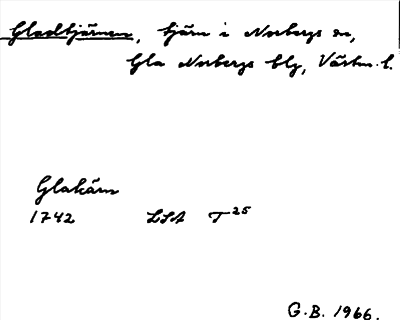 Gladtjärnen, tjärn i Norbergs sn,
Gla Norbergs blg, Västm. l.
Glakärn
1742 LSA T25
G.B. 1966.